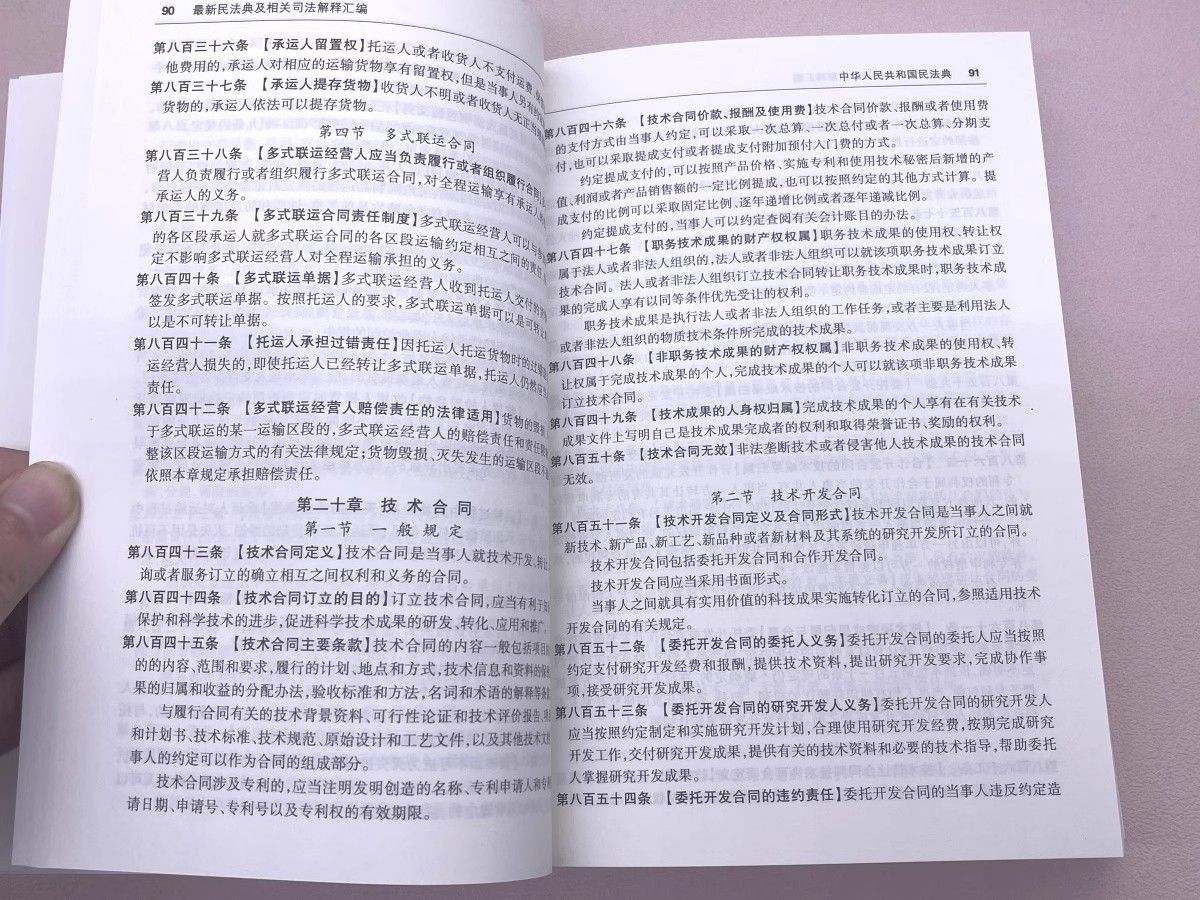 90 最新民法典及相关司法解释汇编
第八百三十六条 【承运人留置权】托运人或者收货人不支付运费、保
他费用的,承运人对相应的运输货物享有留置权,但是当事人另有约
第八百三十七条 【承运人提存货物】收货人不明或者收货人无正当
货物的,承运人依法可以提存货物。
第四节 多式联运合同
第八百三十八条 【多式联运经营人应当负责履行或者组织履行合同】
营人负责履行或者组织履行多式联运合同,对全程运输享有承运人的
承运人的义务。
第八百三十九条 【多式联运合同责任制度】多式联运经营人可以与参
的各区段承运人就多式联运合同的各区段运输约定相互之间的责任,
定不影响多式联运经营人对全程运输承担的义务。
第八百四十条 【多式联运单据】多式联运经营人收到托运人交付的货
签发多式联运单据。按照托运人的要求,多式联运单据可以是可转让
以是不可转让单据。
第八百四十一条 【托运人承担过错责任】因托运人托运货物时的过错
运经营人损失的,即使托运人已经转让多式联运单据,托运人仍然应当
责任。
第八百四十二条 【多式联运经营人赔偿责任的法律适用】货物的毁损
于多式联运的某一运输区段的,多式联运经营人的赔偿责任和责任限
整该区段运输方式的有关法律规定;货物毁损、灭失发生的运输区段不
依照本章规定承担赔偿责任。
第二十章 技术合同
第一节 一般规定
第八百四十三条 【技术合同定义】技术合同是当事人就技术开发、转让
询或者服务订立的确立相互之间权利和义务的合同。
第八百四十四条 【技术合同订立的目的】订立技术合同,应当有利于知
保护和科学技术的进步,促进科学技术成果的研发、转化、应用和推广。
第八百四十五条 【技术合同主要条款】技术合同的内容一般包括项目
的的内容、范围和要求,履行的计划、地点和方式,技术信息和资料的保
果的归属和收益的分配办法,验收标准和方法,名词和术语的解释等条
与履行合同有关的技术背景资料、可行性论证和技术评价报告、项
和计划书、技术标准、技术规范、原始设计和工艺文件,以及其他技术文
事人的约定可以作为合同的组成部分。
技术合同涉及专利的,应当注明发明创造的名称、专利申请人和专
请日期、申请号、专利号以及专利权的有效期限。
中华人民共和国民法典 91
第八百四十六条 【技术合同价款、报酬及使用费】技术合同价款、报酬或者使用费
的支付方式由当事人约定,可以采取一次总算、一次总付或者一次总算、分期支
付,也可以采取提成支付或者提成支付附加预付入门费的方式。
约定提成支付的,可以按照产品价格、实施专利和使用技术秘密后新增的产
值、利润或者产品销售额的一定比例提成,也可以按照约定的其他方式计算。提
成支付的比例可以采取固定比例、逐年递增比例或者逐年递减比例。
约定提成支付的,当事人可以约定查阅有关会计账目的办法。
第八百四十七条 【职务技术成果的财产权权属】职务技术成果的使用权、转让权
属于法人或者非法人组织的,法人或者非法人组织可以就该项职务技术成果订立
技术合同。法人或者非法人组织订立技术合同转让职务技术成果时,职务技术成
果的完成人享有以同等条件优先受让的权利。
职务技术成果是执行法人或者非法人组织的工作任务,或者主要是利用法人
或者非法人组织的物质技术条件所完成的技术成果。
第八百四十八条 【非职务技术成果的财产权权属】非职务技术成果的使用权、转
让权属于完成技术成果的个人,完成技术成果的个人可以就该项非职务技术成果
订立技术合同。
第八百四十九条 【技术成果的人身权归属】完成技术成果的个人享有在有关技术
成果文件上写明自己是技术成果完成者的权利和取得荣誉证书、奖励的权利。
第八百五十条 【技术合同无效】非法垄断技术或者侵害他人技术成果的技术合同
无效。
第二节 技术开发合同
第八百五十一条 【技术开发合同定义及合同形式】技术开发合同是当事人之间就
新技术、新产品、新工艺、新品种或者新材料及其系统的研究开发所订立的合同。
技术开发合同包括委托开发合同和合作开发合同。
技术开发合同应当采用书面形式。
当事人之间就具有实用价值的科技成果实施转化订立的合同,参照适用技术
开发合同的有关规定。
第八百五十二条 【委托开发合同的委托人义务】委托开发合同的委托人应当按照
约定支付研究开发经费和报酬,提供技术资料,提出研究开发要求,完成协作事
项,接受研究开发成果。
第八百五十三条 【委托开发合同的研究开发人义务】委托开发合同的研究开发人
应当按照约定制定和实施研究开发计划,合理使用研究开发经费,按期完成研究
开发工作,交付研究开发成果,提供有关的技术资料和必要的技术指导,帮助委托
人掌握研究开发成果。
第八百五十四条 【委托开发合同的违约责任】委托开发合同的当事人违反约定造